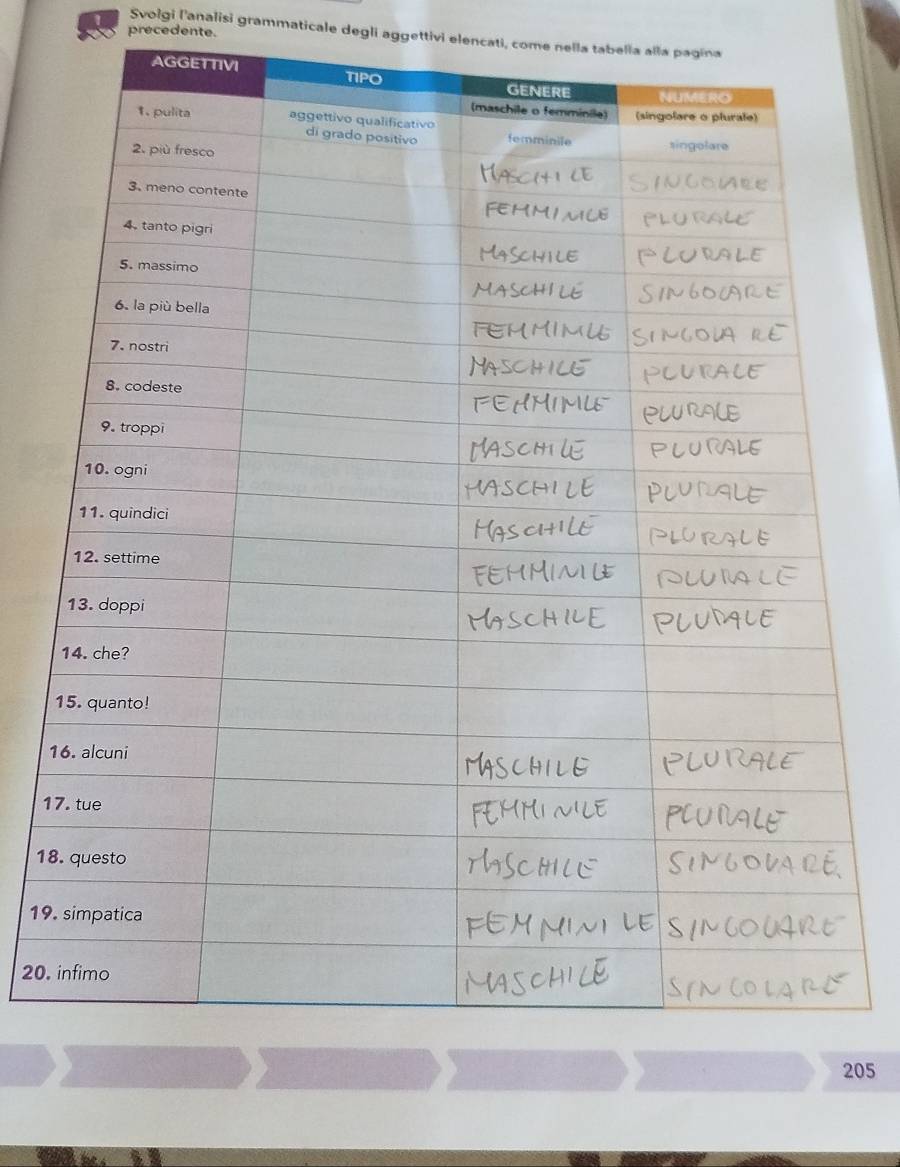 1 Svolgi l'analisi grammaticale degli aggettivi elencati, come nella tabella alla pagina
precedente.
AGGETTIVI TIPO GENERE NUMERO
(maschile o femminile) (singolare o plurale)
1. pulita aggettivo qualificativo
di grado positivo femminile singolare
2. più fresco MASCHILE SINGOLARE
3. meno contente FEMMINILE PLURALE
4. tanto pigri MASCHILE PLURALE
5. massimo MASCHILE SINGOLARE
6. la più bella FEMMIMLE SINGOLARE
7. nostri MASCHILE PLURALE
8. codeste FEMMIMLE PLURALE
9. troppi MASCHILE PLURALE
10. ogni MASCHILE PLURALE
11. quindici MASCHILE PLURALE
12. settime FEMMINILE PLURALE
13. doppi MASCHILE PLURALE
14. che?
15. quanto!
16. alcuni MASCHILE PLURALE
17. tue FEMMINILE PLURALE
18. questo MASCHILE SINGOLARE.
19. simpatica FEMMINILE SINGOLARE
20. infimo MASCHILE SINGOLARE
205